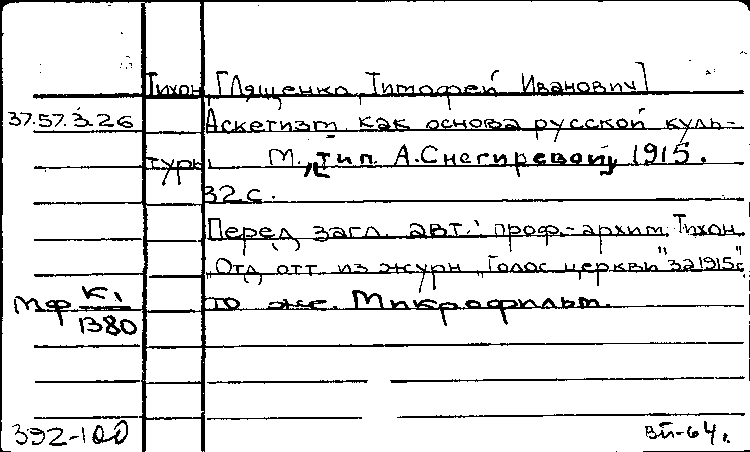 Тихон [Лященко, Тимофей Иванович]
37.57.3.26 Аскетизм как основа русской куль-
туры М., тип. А. Снегиревой, 1915.
32 с.
Перед загл. авт.: проф.-архим. Тихон.
Отд. отт. из журн. "Голос церкви" за 1915 г.
Мф К1/1380 то же. Микрофильм.
392-100 ВП-64г.